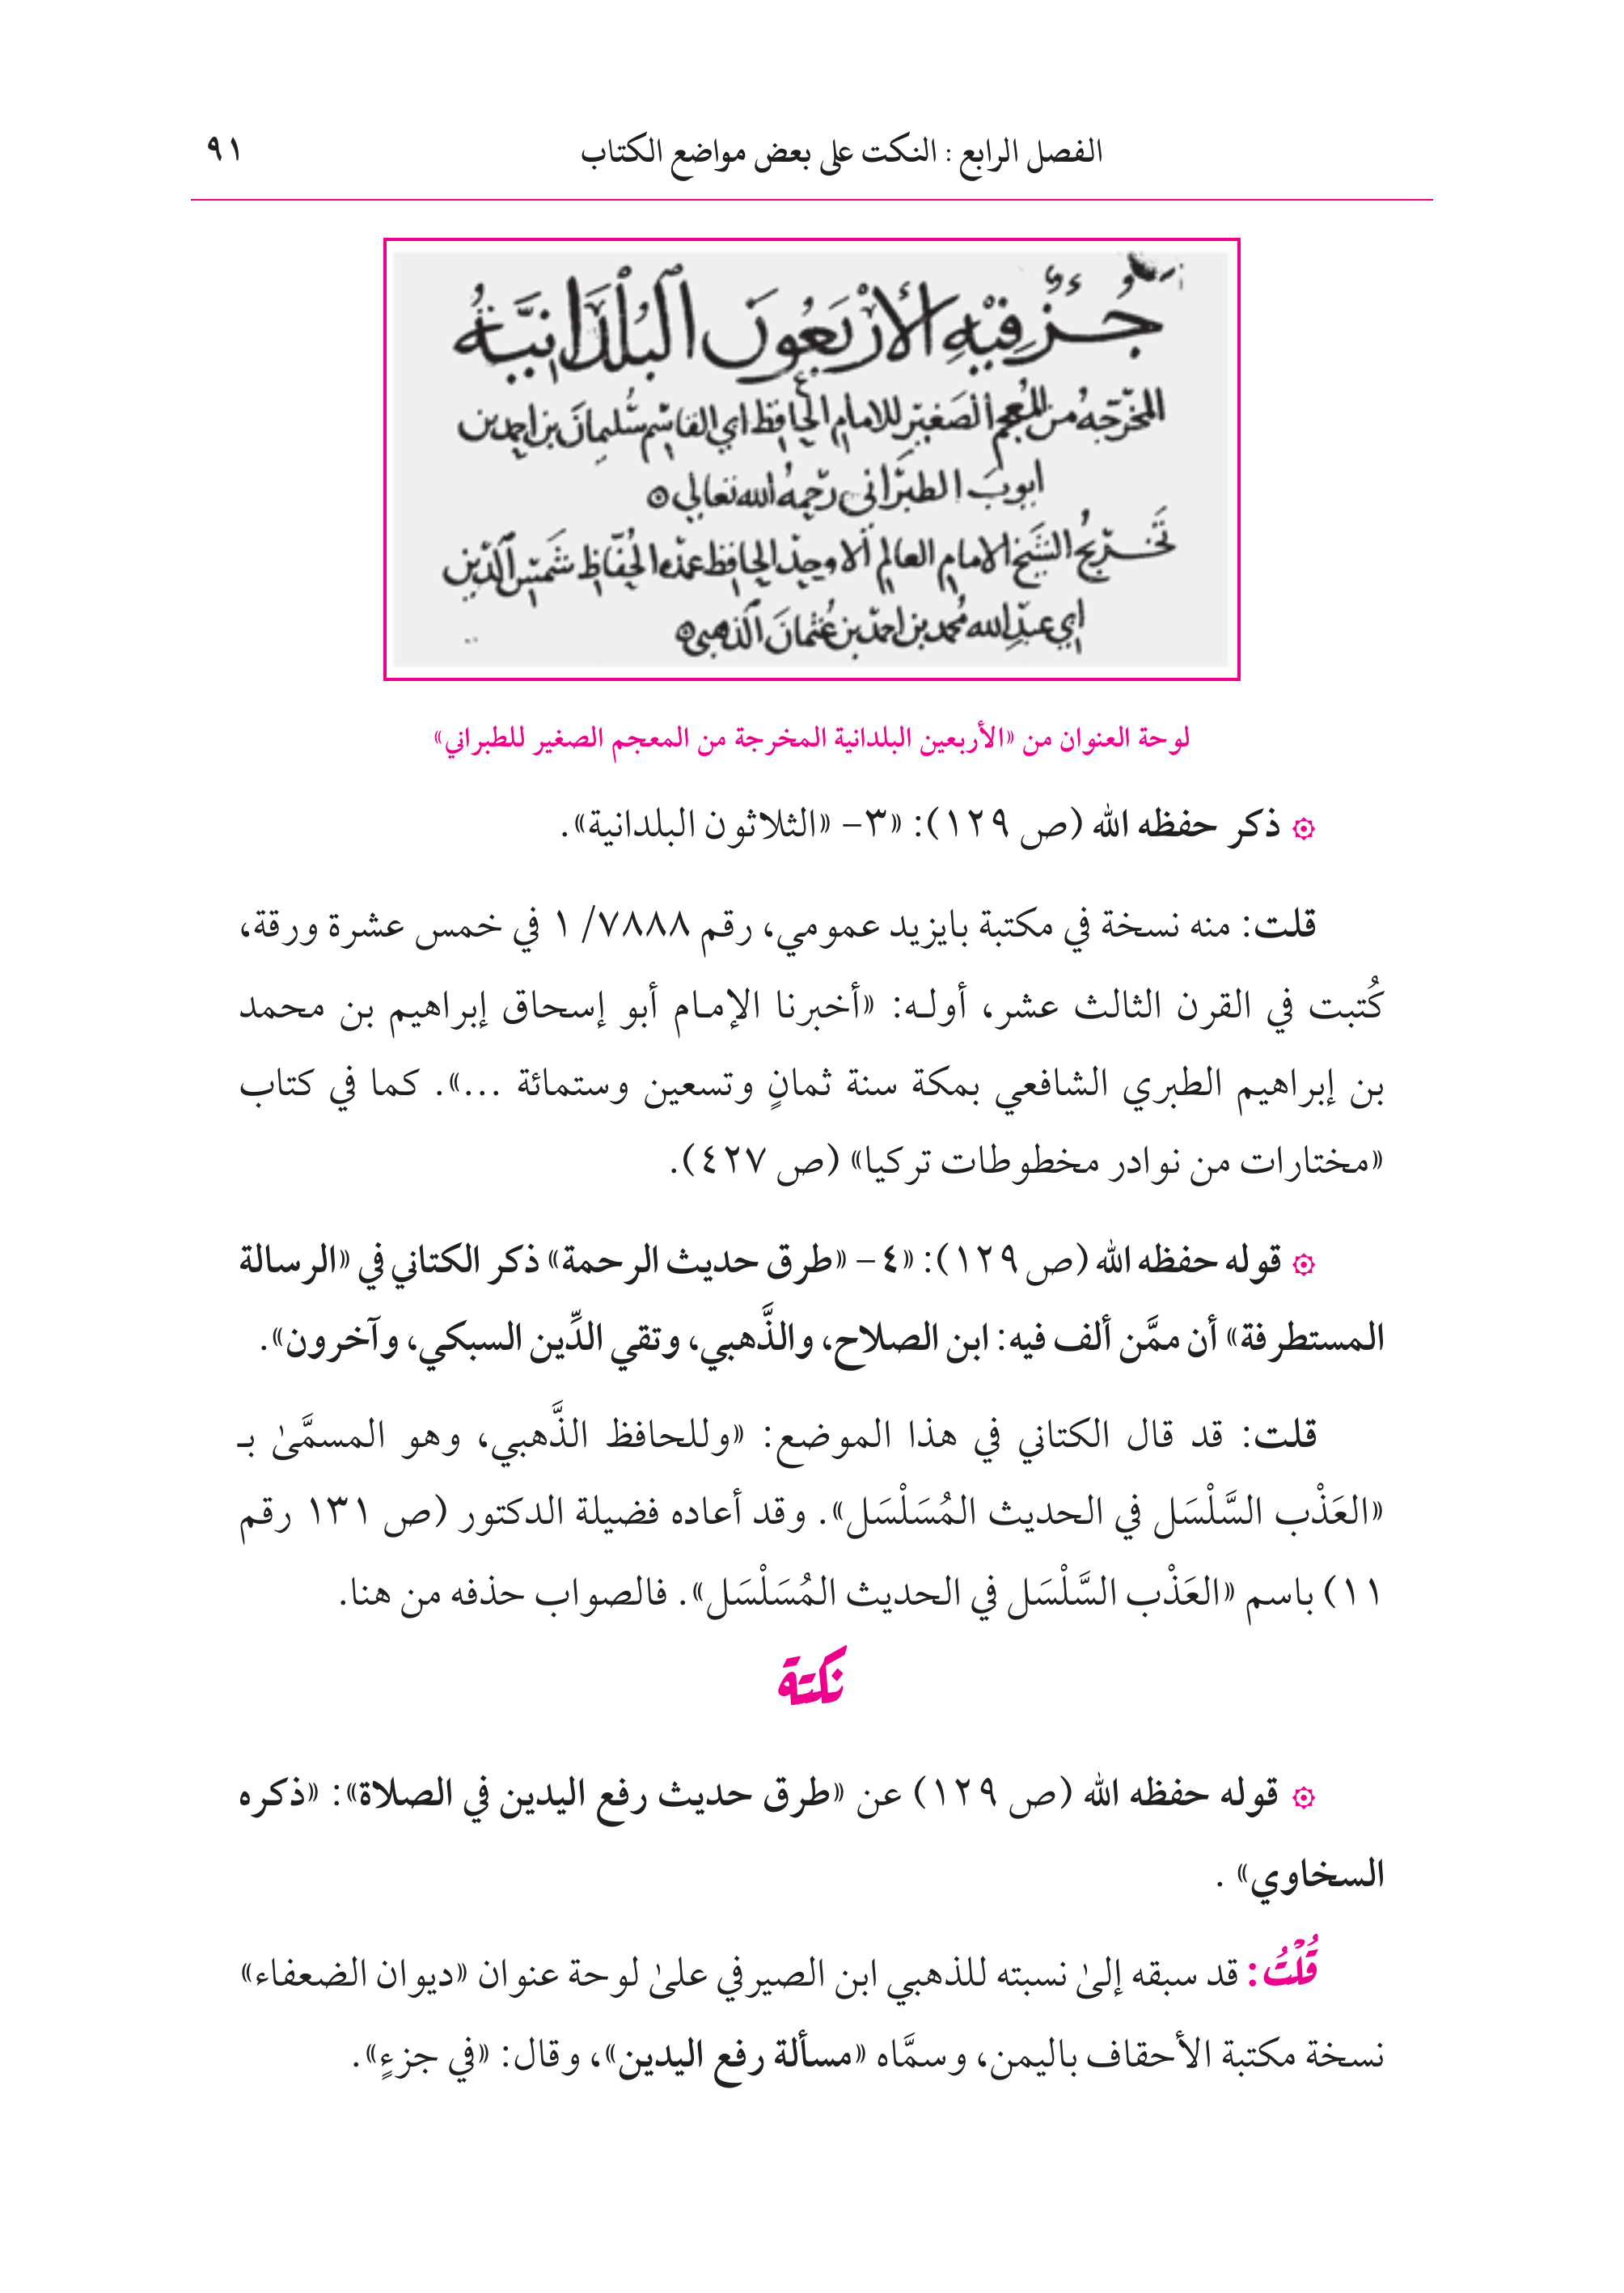 الفصل الرابع : النكت على بعض مواضع الكتاب ٩١
جُزْءٌ فِيْهِ الأَرْبَعُونَ البُلْدَانِيَّة
المخرّجة من المعجم الصغير للامام الحافظ ابي القاسم سُليمانَ بن احمد بن
ايوب الطبراني رحمه الله تعالى
تخريجُ الشيخ الامام العالم الاوحد الحافظ عمدة الحُفّاظ شمس الدين
ابي عبد الله محمد بن احمد بن عُثمانَ الذهبي
لوحة العنوان من «الأربعين البلدانية المخرجة من المعجم الصغير للطبراني»
ذكر حفظه الله (ص ١٢٩): «٣- «الثلاثون البلدانية».
قلت: منه نسخة في مكتبة بايزيد عمومي، رقم ٧٨٨٨/ ١ في خمس عشرة ورقة،
كُتبت في القرن الثالث عشر، أولـه: «أخبرنا الإمـام أبو إسحاق إبراهيم بن محمد
بن إبراهيم الطبري الشافعي بمكة سنة ثمانٍ وتسعين وستمائة ...». كما في كتاب
«مختارات من نوادر مخطوطات تركيا» (ص ٤٢٧).
قوله حفظه الله (ص ١٢٩): «٤- «طرق حديث الرحمة» ذكر الكتاني في «الرسالة
المستطرفة» أن ممَّن ألف فيه: ابن الصلاح، والذَّهبي، وتقي الدِّين السبكي، وآخرون».
قلت: قد قال الكتاني في هذا الموضع: «وللحافظ الذَّهبي، وهو المسمَّىٰ بـ
«العَذْب السَّلْسَل في الحديث المُسَلْسَل». وقد أعاده فضيلة الدكتور (ص ١٣١ رقم
١١) باسم «العَذْب السَّلْسَل في الحديث المُسَلْسَل». فالصواب حذفه من هنا.
نكتة
قوله حفظه الله (ص ١٢٩) عن «طرق حديث رفع اليدين في الصلاة»: «ذكره
السخاوي» .
قُلْتُ: قد سبقه إلىٰ نسبته للذهبي ابن الصيرفي علىٰ لوحة عنوان «ديوان الضعفاء»
نسخة مكتبة الأحقاف باليمن، وسمَّاه «مسألة رفع اليدين»، وقال: «في جزءٍ».